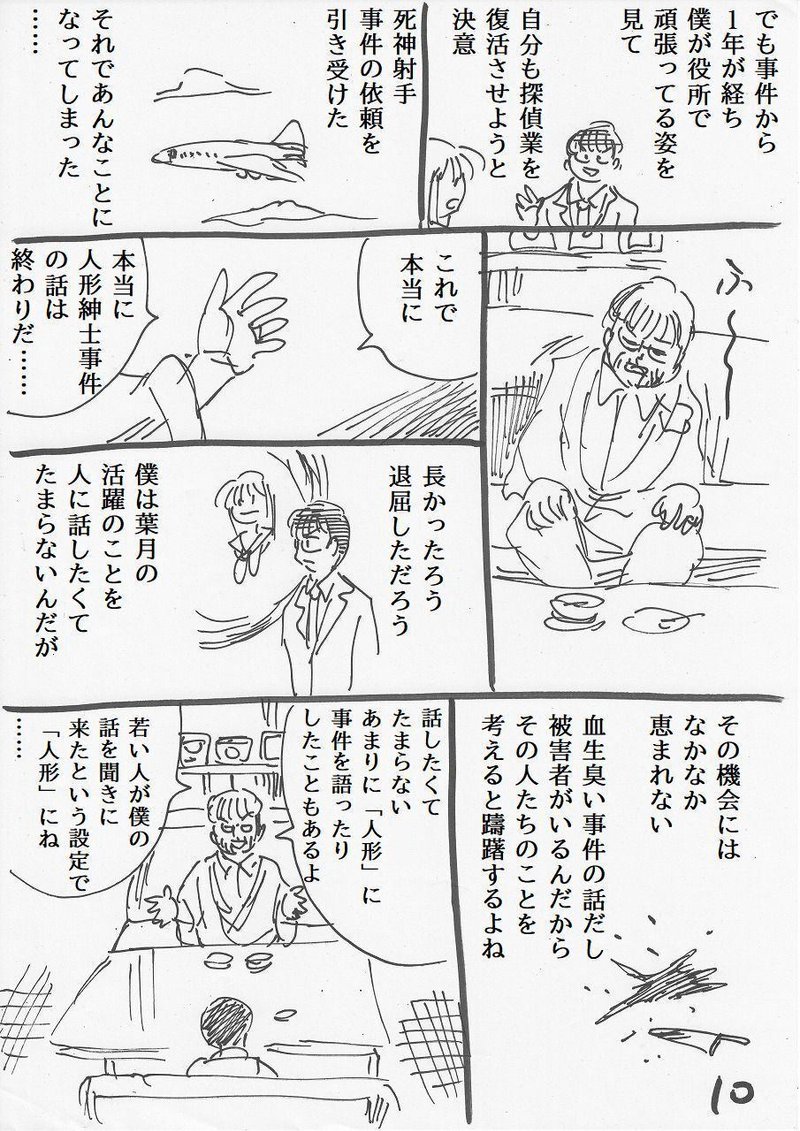 でも事件から
1年が経ち
僕が役所で
頑張ってる姿を
見て
自分も探偵業を
復活させようと
決意
死神射手
事件の依頼を
引き受けた
それであんなことに
なってしまった
……
ふ〜
これで
本当に
本当に
人形紳士事件
の話は
終わりだ……
長かったろう
退屈しただろう
僕は葉月の
活躍のことを
人に話したくて
たまらないんだが
その機会には
なかなか
恵まれない
血生臭い事件の話だし
被害者がいるんだから
その人たちのことを
考えると躊躇するよね
話したくて
たまらない
あまりに「人形」に
事件を語ったり
したこともあるよ
若い人が僕の
話を聞きに
来たという設定で
「人形」にね
……
10